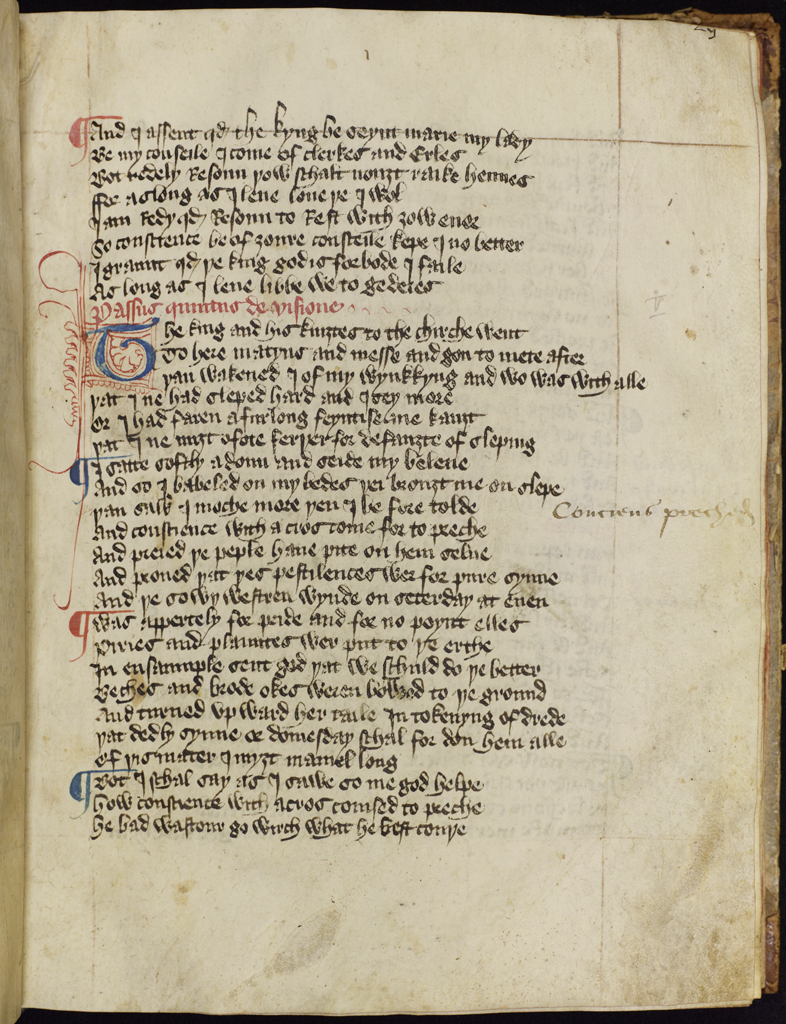 29
And I assent qd the kyng be seynt marie my lady
Be my conseile I come of clerkes and Erles
Bot redely Resoun yow schalt nouȝt raike hennes
ffor as long as I leue loue ye I wol
I am redy qd Resoun to Rest with ȝow euer
So conscience be of ȝoure conseile kepe I no better
I graunt qd ye king godis forbode I faile
As long as I leue libbe we to gederes
Passus quintus de visione
The king and his kniȝtes to the chirche went
To here matyns and messe and gon to mete after
yan wakened I of my wynkkyng and wo was with alle
yat I ne had sleped hard and I sey more
Or I had faren a furlong feyntise me hauȝt
yat I ne miȝt o fote feryer for defauȝte of sleping
I satte softly adoun and seide my beleue
And so I babeled on my bedes yei brouȝt me on slepe
yan saw I moche more yen I be fore tolde
And conscience with a cros come for to preche
And preied ye peple haue pite on hem selue
And proued yat yes pestilences wer for pure synne
And ye sowy westren wynde on seterday at euen
was appertely for pride and for no poynt elles
Piries and plauntes wer put to ye erthe
In ensaumple sent god yat we schuld do ye better
Beches and brode okes weren bowed to ye ground
And turned vpward her taile In tokenyng of drede
yat dedly synne or domesday schal for don hem alle
Of yis mater I myȝt mamel long
Bot I schal say as I sawe so me god helpe
how conscience with a cros comsed to preche
He bad wastour go wirch what he best couye
Conciens preched